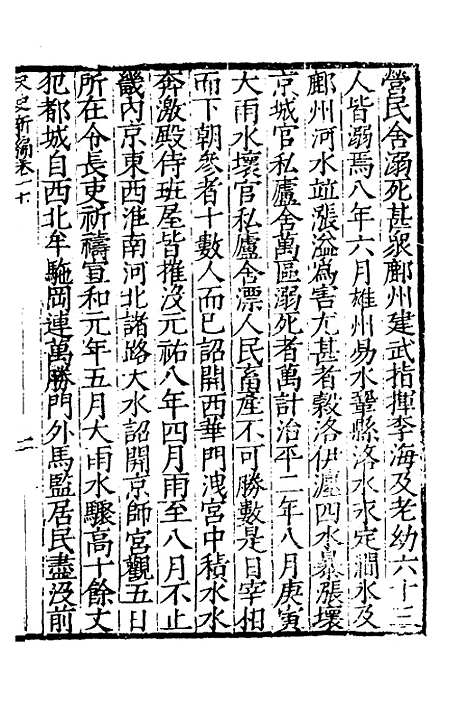 營民舍溺死甚衆鄜州建武指揮李海及老幼六十三
人皆溺焉八年六月雄州易水鞏縣洛水永定澗水及
鄜州河水並漲溢爲害尤甚者穀洛伊瀍四水暴漲壞
京城官私廬舍萬區溺死者萬計治平二年八月庚寅
大雨水壞官私廬舍漂人民畜產不可勝數是日宰相
而下朝參者十數人而已詔開西華門洩宮中積水水
奔激殿侍班屋皆摧没元祐八年四月雨至八月不止
畿内京東西淮南河北諸路大水詔開京師宮觀五日
所在令長吏祈禱宣和元年五月大雨水驟高十餘丈
犯都城自西北牟駞岡連萬勝門外馬監居民盡没前
宋史新編卷二十
二